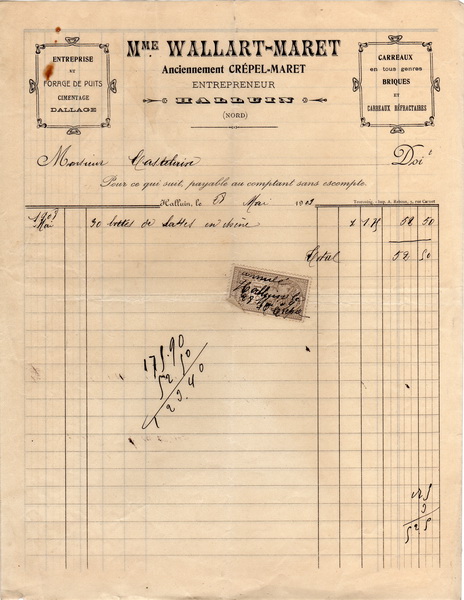 ENTREPRISE
ET
FORAGE DE PUITS
CIMENTAGE
DALLAGE
MME WALLART-MARET
Anciennement CRÉPEL-MARET
ENTREPRENEUR
HALLUIN
(NORD)
CARREAUX
en tous genres
BRIQUES
ET
CARREAUX RÉFRACTAIRES
Monsieur Castelaire Doit
Pour ce qui suit, payable au comptant sans escompte.
Halluin, le 8 Mai 1908
Tourcoing
1908
Mai 30 bottes de lattes en chêne 1 75 52 50
Total 52 50
175.90
52 50
123.40
175
3
525